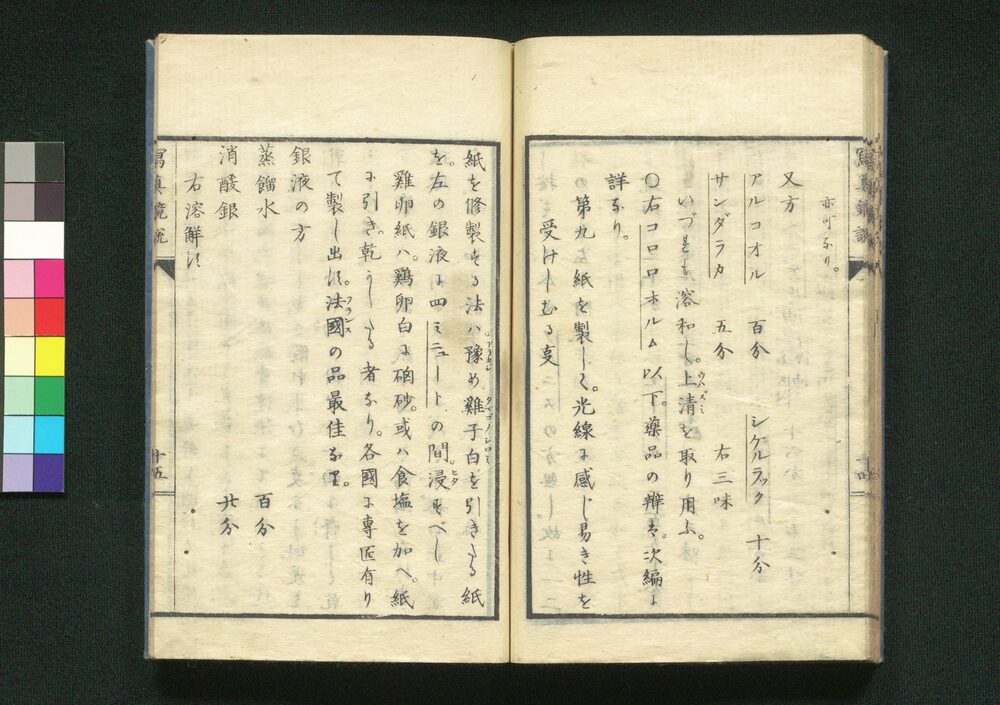 亦可なり。
又方
アルコオル　百分　シケルラック　十分
サンダラカ　五分　右三味
いづれも溶和し。上清を取り用ふ。
ウハズミ
〇右コロロホルム以下。薬品の辨は。次編に
詳なり。
第九　紙を製して。光線に感じ易き性を
受けしむる事
紙を修製する法ハ豫め雞子白を引きたる紙
アラカジ
タマゴノシロミ
を。左の銀液に四ミニュートの間。浸すべし
ヒタ
雞卵紙ハ。鶏卵白に硇砂。或ハ食塩を加へ。紙
に引き。乾かしたる者なり。各國に專匠有り
て製し出す。法國の品最佳なり。
フランス
銀液の方
蒸餾水　百分
消酸銀　廿分
右溶解す
寫真鏡説
十五